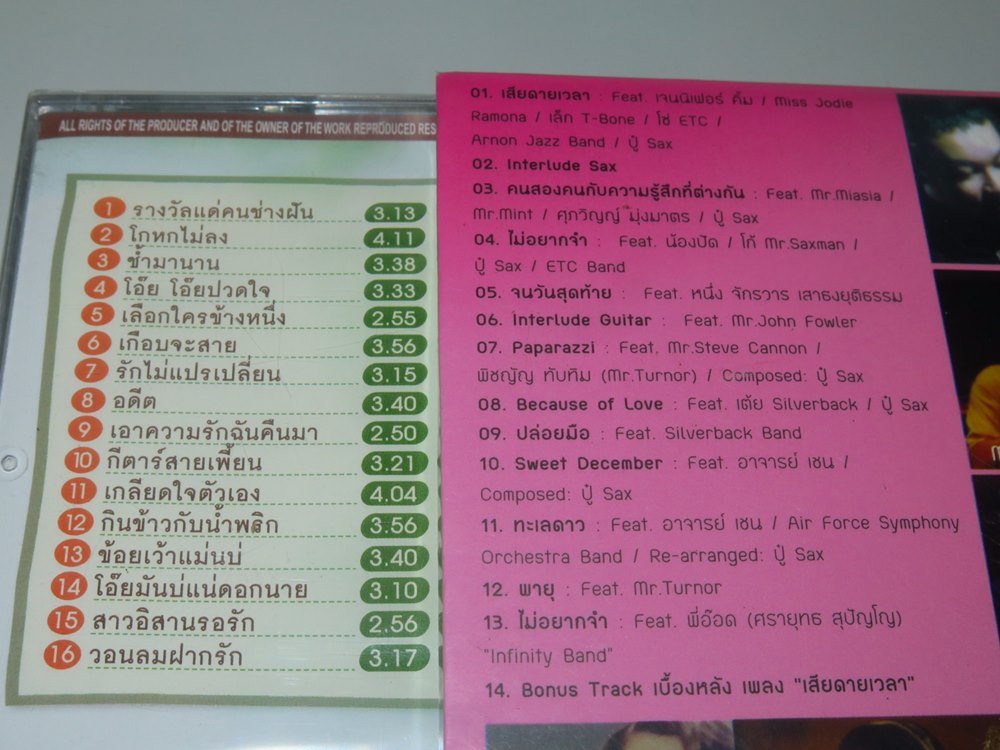 ALL RIGHTS OF THE PRODUCER AND OF THE OWNER OF THE WORK REPRODUCED RES
1 รางวัลแด่คนช่างฝัน 3.13
2 โกหกไม่ลง 4.11
3 ช้ำมานาน 3.38
4 โอ๊ย โอ๊ยปวดใจ 3.33
5 เลือกใครข้างหนึ่ง 2.55
6 เกือบจะสาย 3.56
7 รักไม่แปรเปลี่ยน 3.15
8 อดีต 3.40
9 เอาความรักฉันคืนมา 2.50
10 กีตาร์สายเพี้ยน 3.21
11 เกลียดใจตัวเอง 4.04
12 กินข้าวกับน้ำพริก 3.56
13 ข้อยเว้าแม่นบ่ 3.40
14 โอ๊ยมันบ่แน่ดอกนาย 3.10
15 สาวอิสานรอรัก 2.56
16 วอนลมฝากรัก 3.17
01. เสียดายเวลา : Feat. เจนนิเฟอร์ คิ้ม / Miss Jodie
Ramona / เล็ก T-Bone / โซ่ ETC /
Arnon Jazz Band / ปู่ Sax
02. Interlude Sax
03. คนสองคนกับความรู้สึกที่ต่างกัน : Feat. Mr.Miasia /
Mr.Mint / ศุภวิญญ์ มุ่งมาตร / ปู่ Sax
04. ไม่อยากจำ : Feat. น้องปัด / โก้ Mr.Saxman /
ปู่ Sax / ETC Band
05. จนวันสุดท้าย : Feat. หนึ่ง จักรวาร เสาธงยุติธรรม
06. Interlude Guitar : Feat. Mr.John Fowler
07. Paparazzi : Feat. Mr.Steve Cannon /
พิชญัญ ทับทิม (Mr.Turnor) / Composed: ปู่ Sax
08. Because of Love : Feat. เต้ย Silverback / ปู่ Sax
09. ปล่อยมือ : Feat. Silverback Band
10. Sweet December : Feat. อาจารย์ เชน /
Composed: ปู่ Sax
11. ทะเลดาว : Feat. อาจารย์ เชน / Air Force Symphony
Orchestra Band / Re-arranged: ปู่ Sax
12. พายุ : Feat. Mr.Turnor
13. ไม่อยากจำ : Feat. พี่อ๊อด (ศรายุทธ สุปัญโญ)
"Infinity Band"
14. Bonus Track เบื้องหลัง เพลง "เสียดายเวลา"